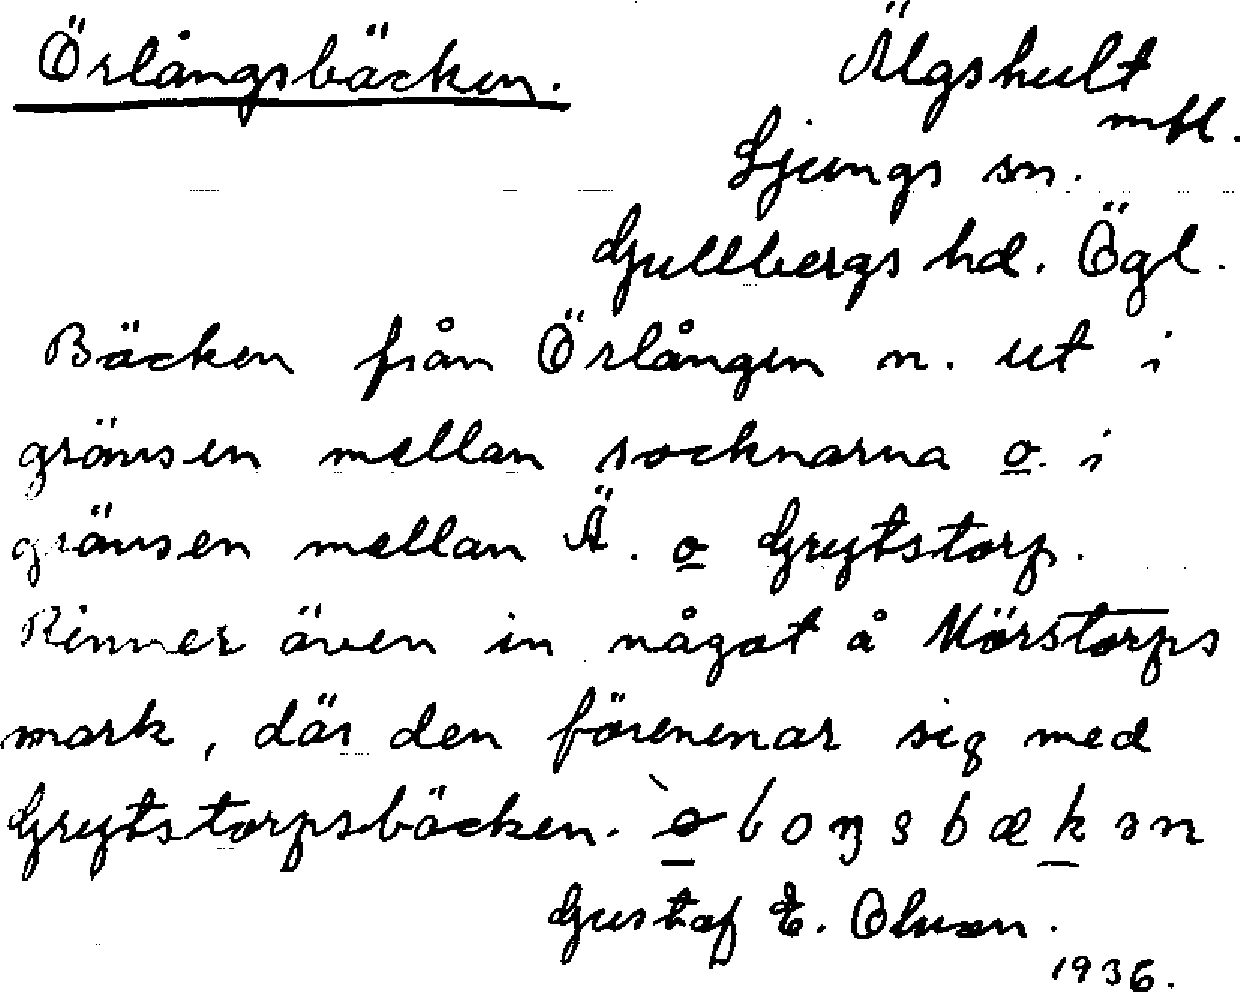 Örlångsbäcken. Älgshult
mtl.
Ljungs sn.
Gullbergs hd. Ögl.
Bäcken från Örlången n. ut i
gränsen mellan socknarna o. i
gränsen mellan Ä. o Grytstorp.
Rinner även in något å Mörstorps
mark, där den förenenar sig med
Grytstorpsbäcken.
Gustaf E. Olsson.
1936.